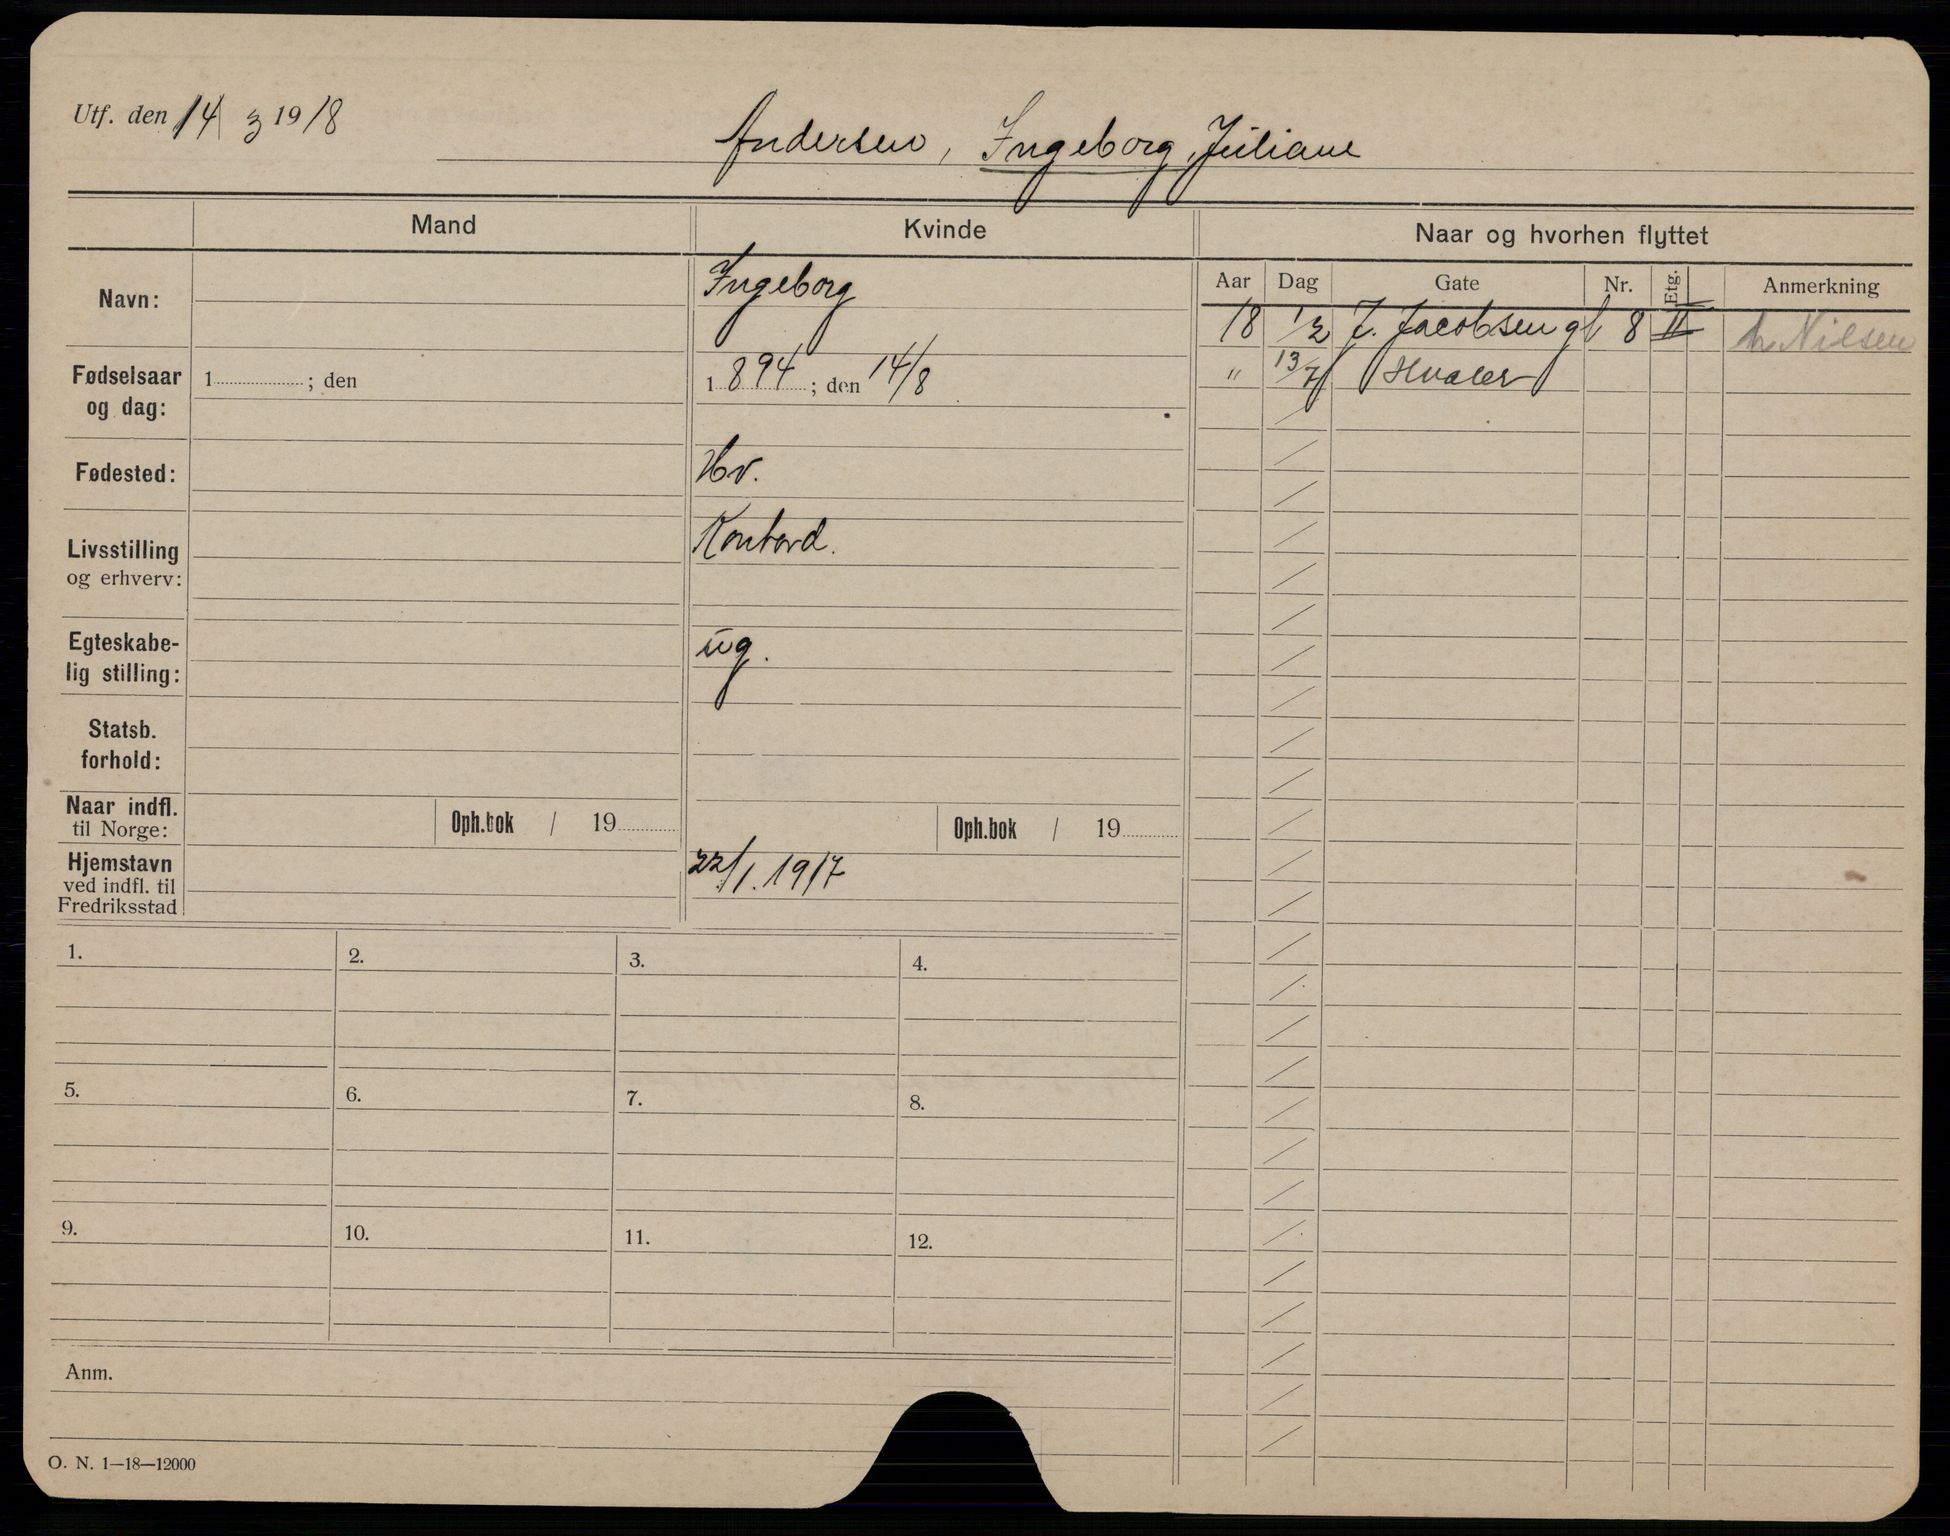 Utf. den 14/3 1918
Andersen, Ingeborg Juliane
Mand Kvinde Naar og hvorhen flyttet
Aar Dag Gate Nr. Etg. Anmerkning
Navn: Ingeborg
18 1/3 J. Jacobsen gt 8 II Nilsen
" 13/7 Hvaler
Fødselsaar
og dag:
1 ; den
1894 ; den 14/8
Fødested: Hv.
Livsstilling
og erhverv:
Kontord.
Egteskabe-
lig stilling:
ug.
Statsb.
forhold:
Naar indfl.
til Norge:
Oph.bok / 19
Oph.bok / 19
Hjemstavn
ved indfl. til
Fredriksstad
22/1. 1917
1. 2. 3. 4.
5. 6. 7. 8.
9. 10. 11. 12.
Anm.
O. N. 1—18—12000